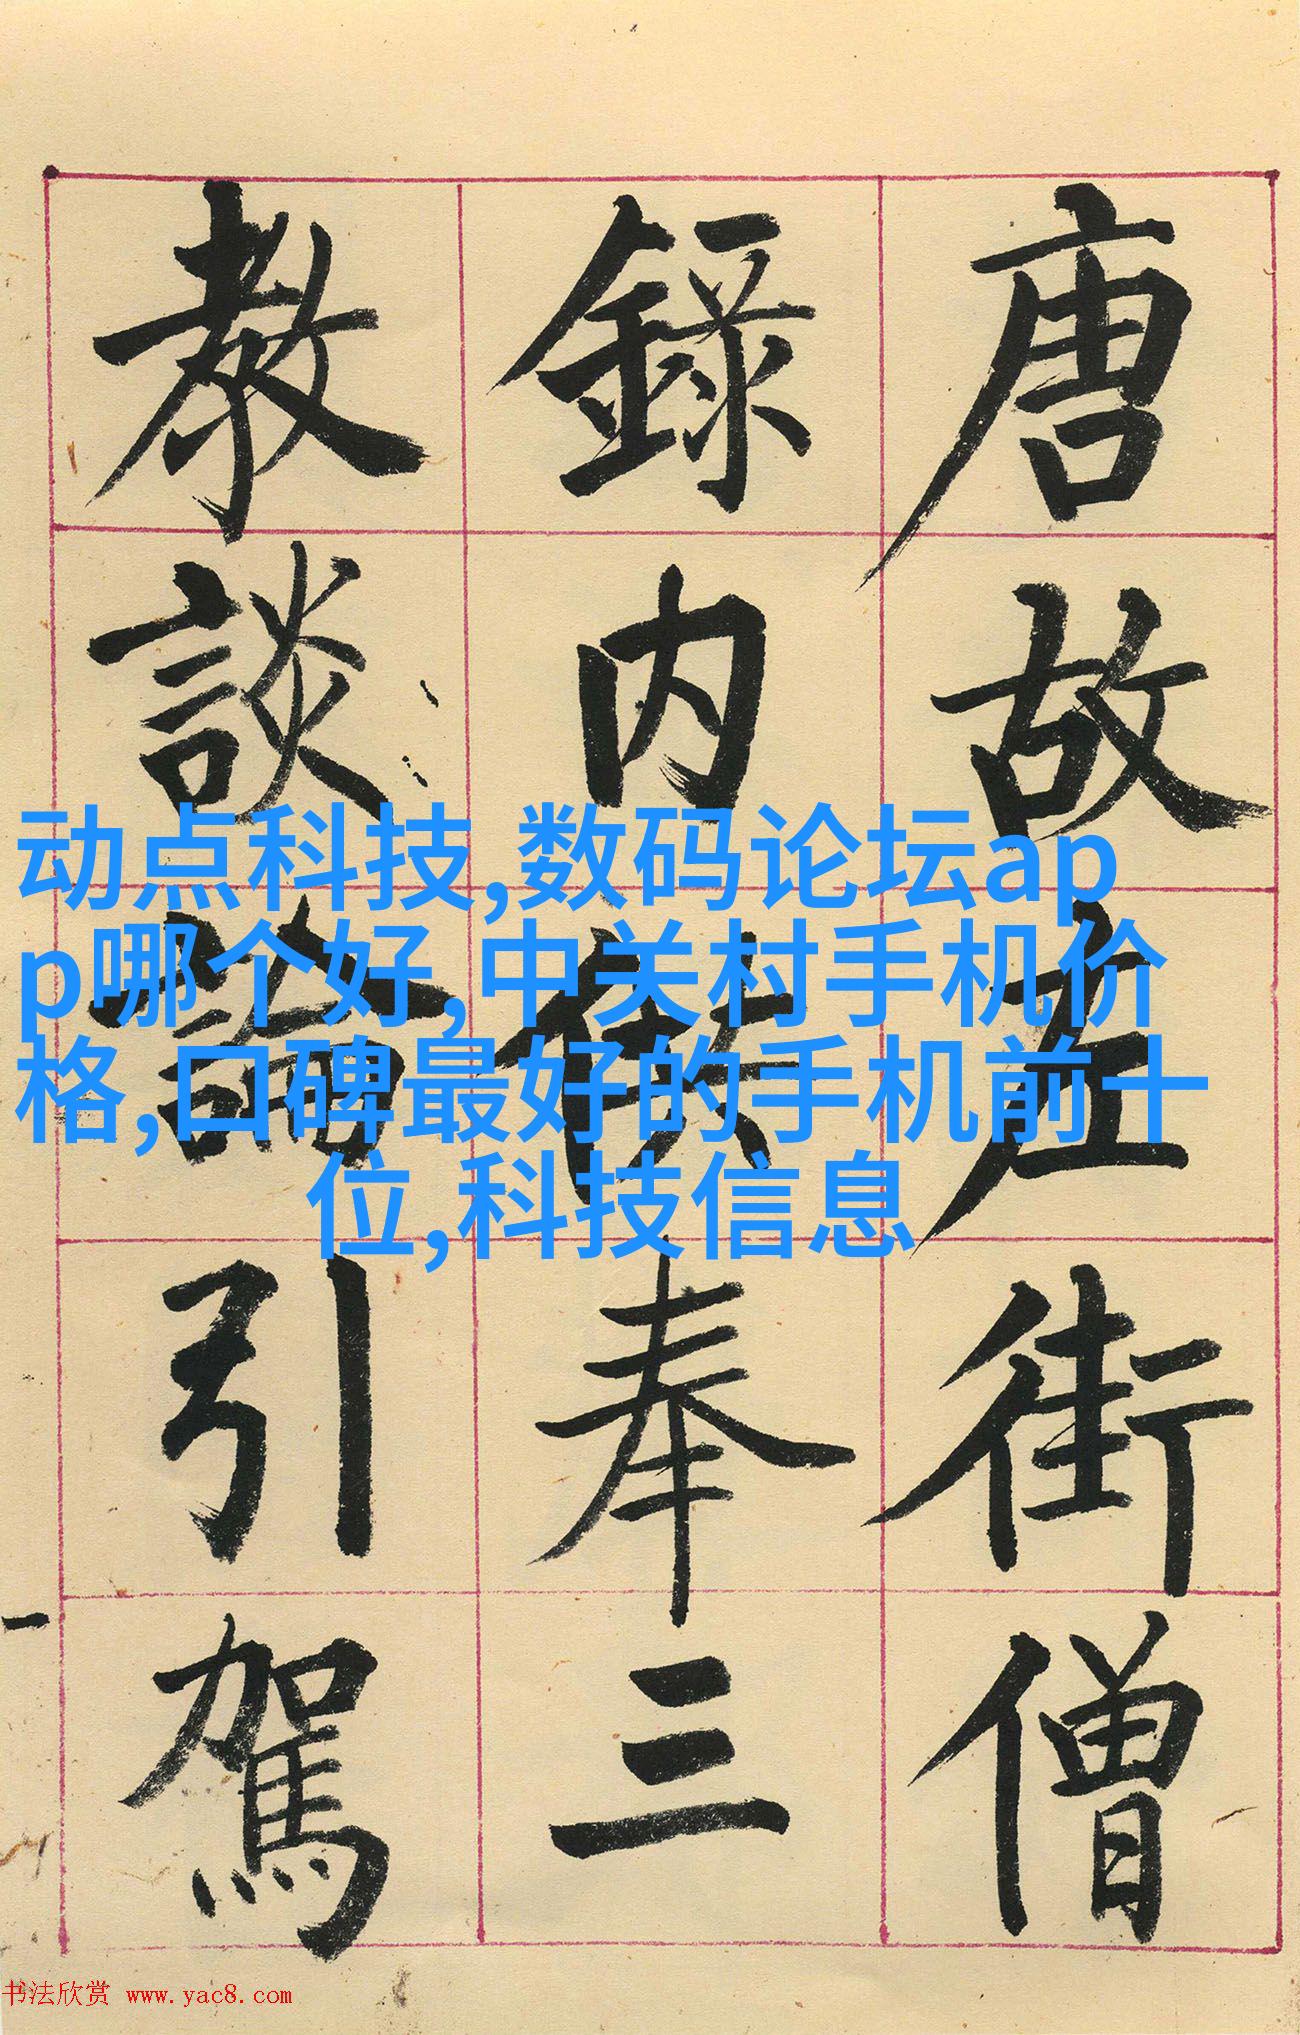 唐故左街僧
錄内供奉三
教談論引駕
动点科技,数码论坛ap
p哪个好,中关村手机价
格,口碑最好的手机前十
位,科技信息
书法欣赏 www.yac8.com